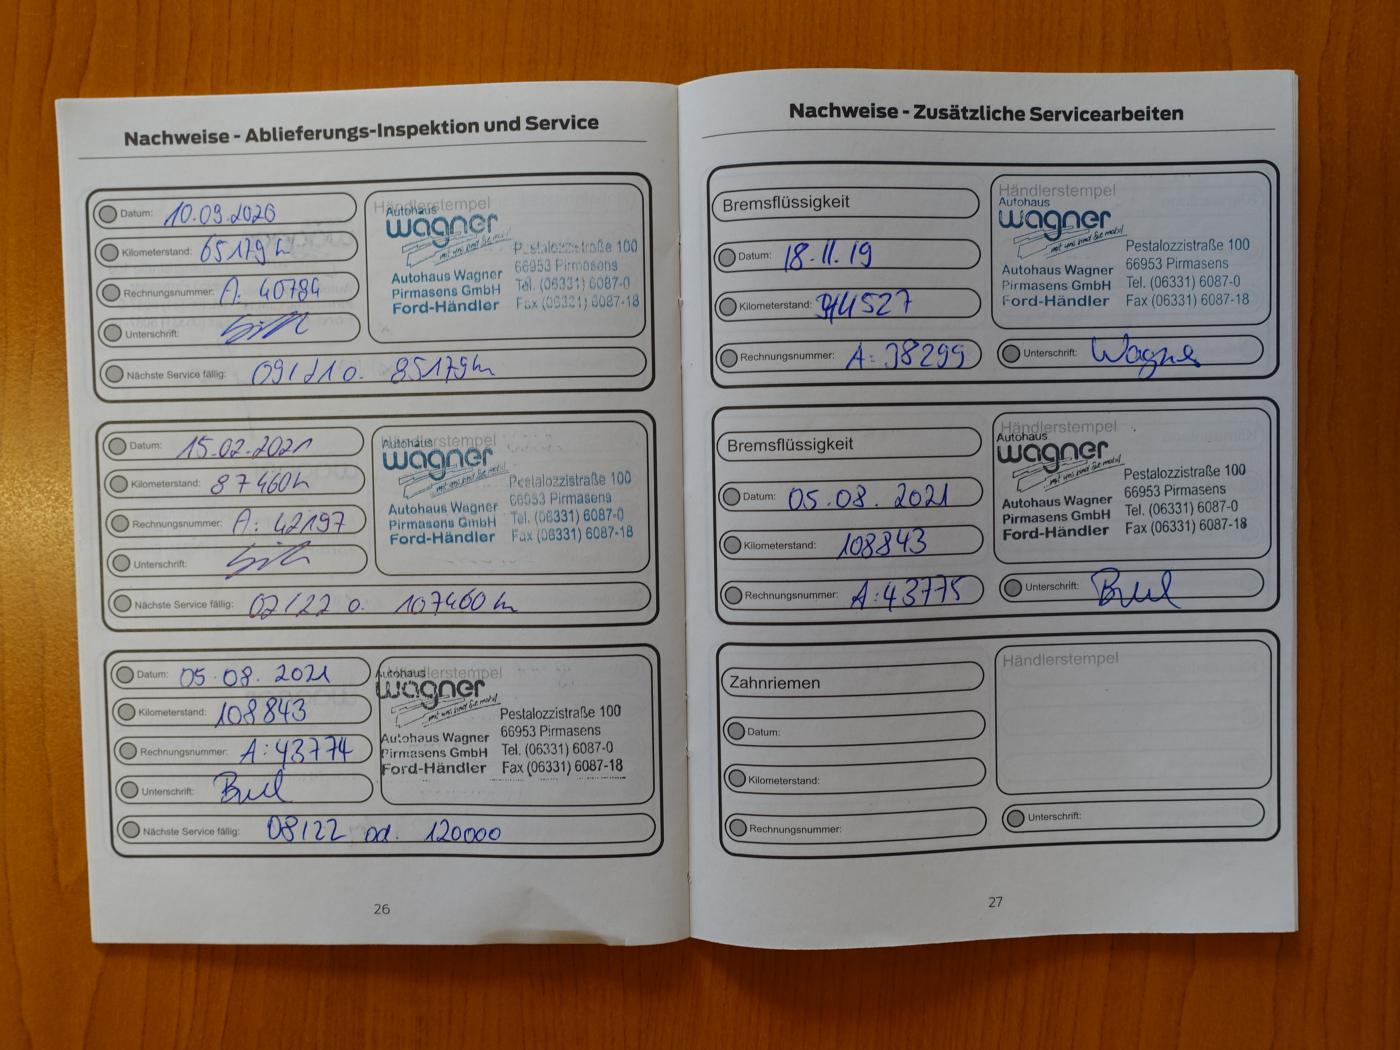 Nachweise - Ablieferungs-Inspektion und Service
Datum: 10.09.2020
Kilometerstand: 65179 km
Rechnungsnummer: A: 40784
Unterschrift:
Nächste Service fällig: 09/21 o. 85179 km
Händlerstempel
Autohaus
wagner
mit uns sind Sie mobil
Autohaus Wagner
Pirmasens GmbH
Ford-Händler
Pestalozzistraße 100
66953 Pirmasens
Tel. (06331) 6087-0
Fax (06331) 6087-18
Datum: 15.02.2021
Kilometerstand: 87460 km
Rechnungsnummer: A: 42197
Unterschrift:
Nächste Service fällig: 02/22 o. 107460 km
Händlerstempel
Autohaus
wagner
mit uns sind Sie mobil
Autohaus Wagner
Pirmasens GmbH
Ford-Händler
Pestalozzistraße 100
66953 Pirmasens
Tel. (06331) 6087-0
Fax (06331) 6087-18
Datum: 05.08.2021
Kilometerstand: 108843
Rechnungsnummer: A: 43774
Unterschrift:
Nächste Service fällig: 08/22 od. 120000
Händlerstempel
Autohaus
wagner
mit uns sind Sie mobil
Autohaus Wagner
Pirmasens GmbH
Ford-Händler
Pestalozzistraße 100
66953 Pirmasens
Tel. (06331) 6087-0
Fax (06331) 6087-18
26
Nachweise - Zusätzliche Servicearbeiten
Bremsflüssigkeit
Datum: 18.11.19
Kilometerstand:
Rechnungsnummer: A: 38299
Händlerstempel
Autohaus
wagner
mit uns sind Sie mobil
Autohaus Wagner
Pirmasens GmbH
Ford-Händler
Pestalozzistraße 100
66953 Pirmasens
Tel. (06331) 6087-0
Fax (06331) 6087-18
Unterschrift: Wagner
Bremsflüssigkeit
Datum: 05.08.2021
Kilometerstand: 108843
Rechnungsnummer: A: 43775
Händlerstempel
Autohaus
wagner
mit uns sind Sie mobil
Autohaus Wagner
Pirmasens GmbH
Ford-Händler
Pestalozzistraße 100
66953 Pirmasens
Tel. (06331) 6087-0
Fax (06331) 6087-18
Unterschrift:
Zahnriemen
Datum:
Kilometerstand:
Rechnungsnummer:
Händlerstempel
Unterschrift:
27